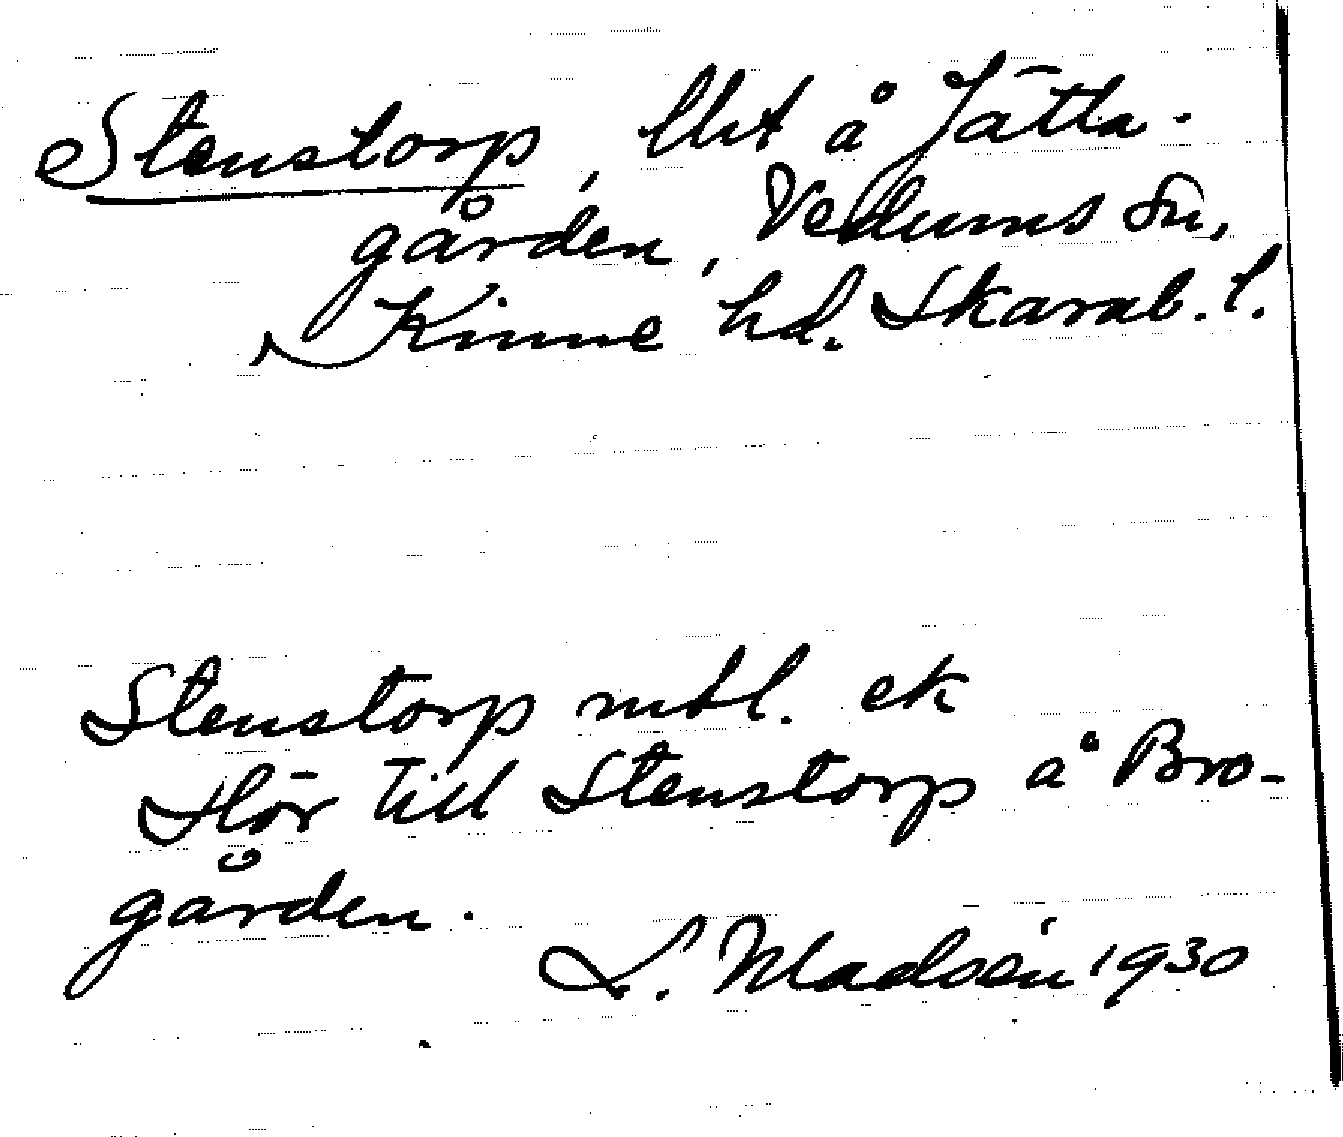 Stenstorp, lht å Jätta-
gården, Vedums sn,
Kinne hd. Skarab. l.
Stenstorp mtl. ek
Hör till Stenstorp å Bro-
gården.
S. Madsén 1930